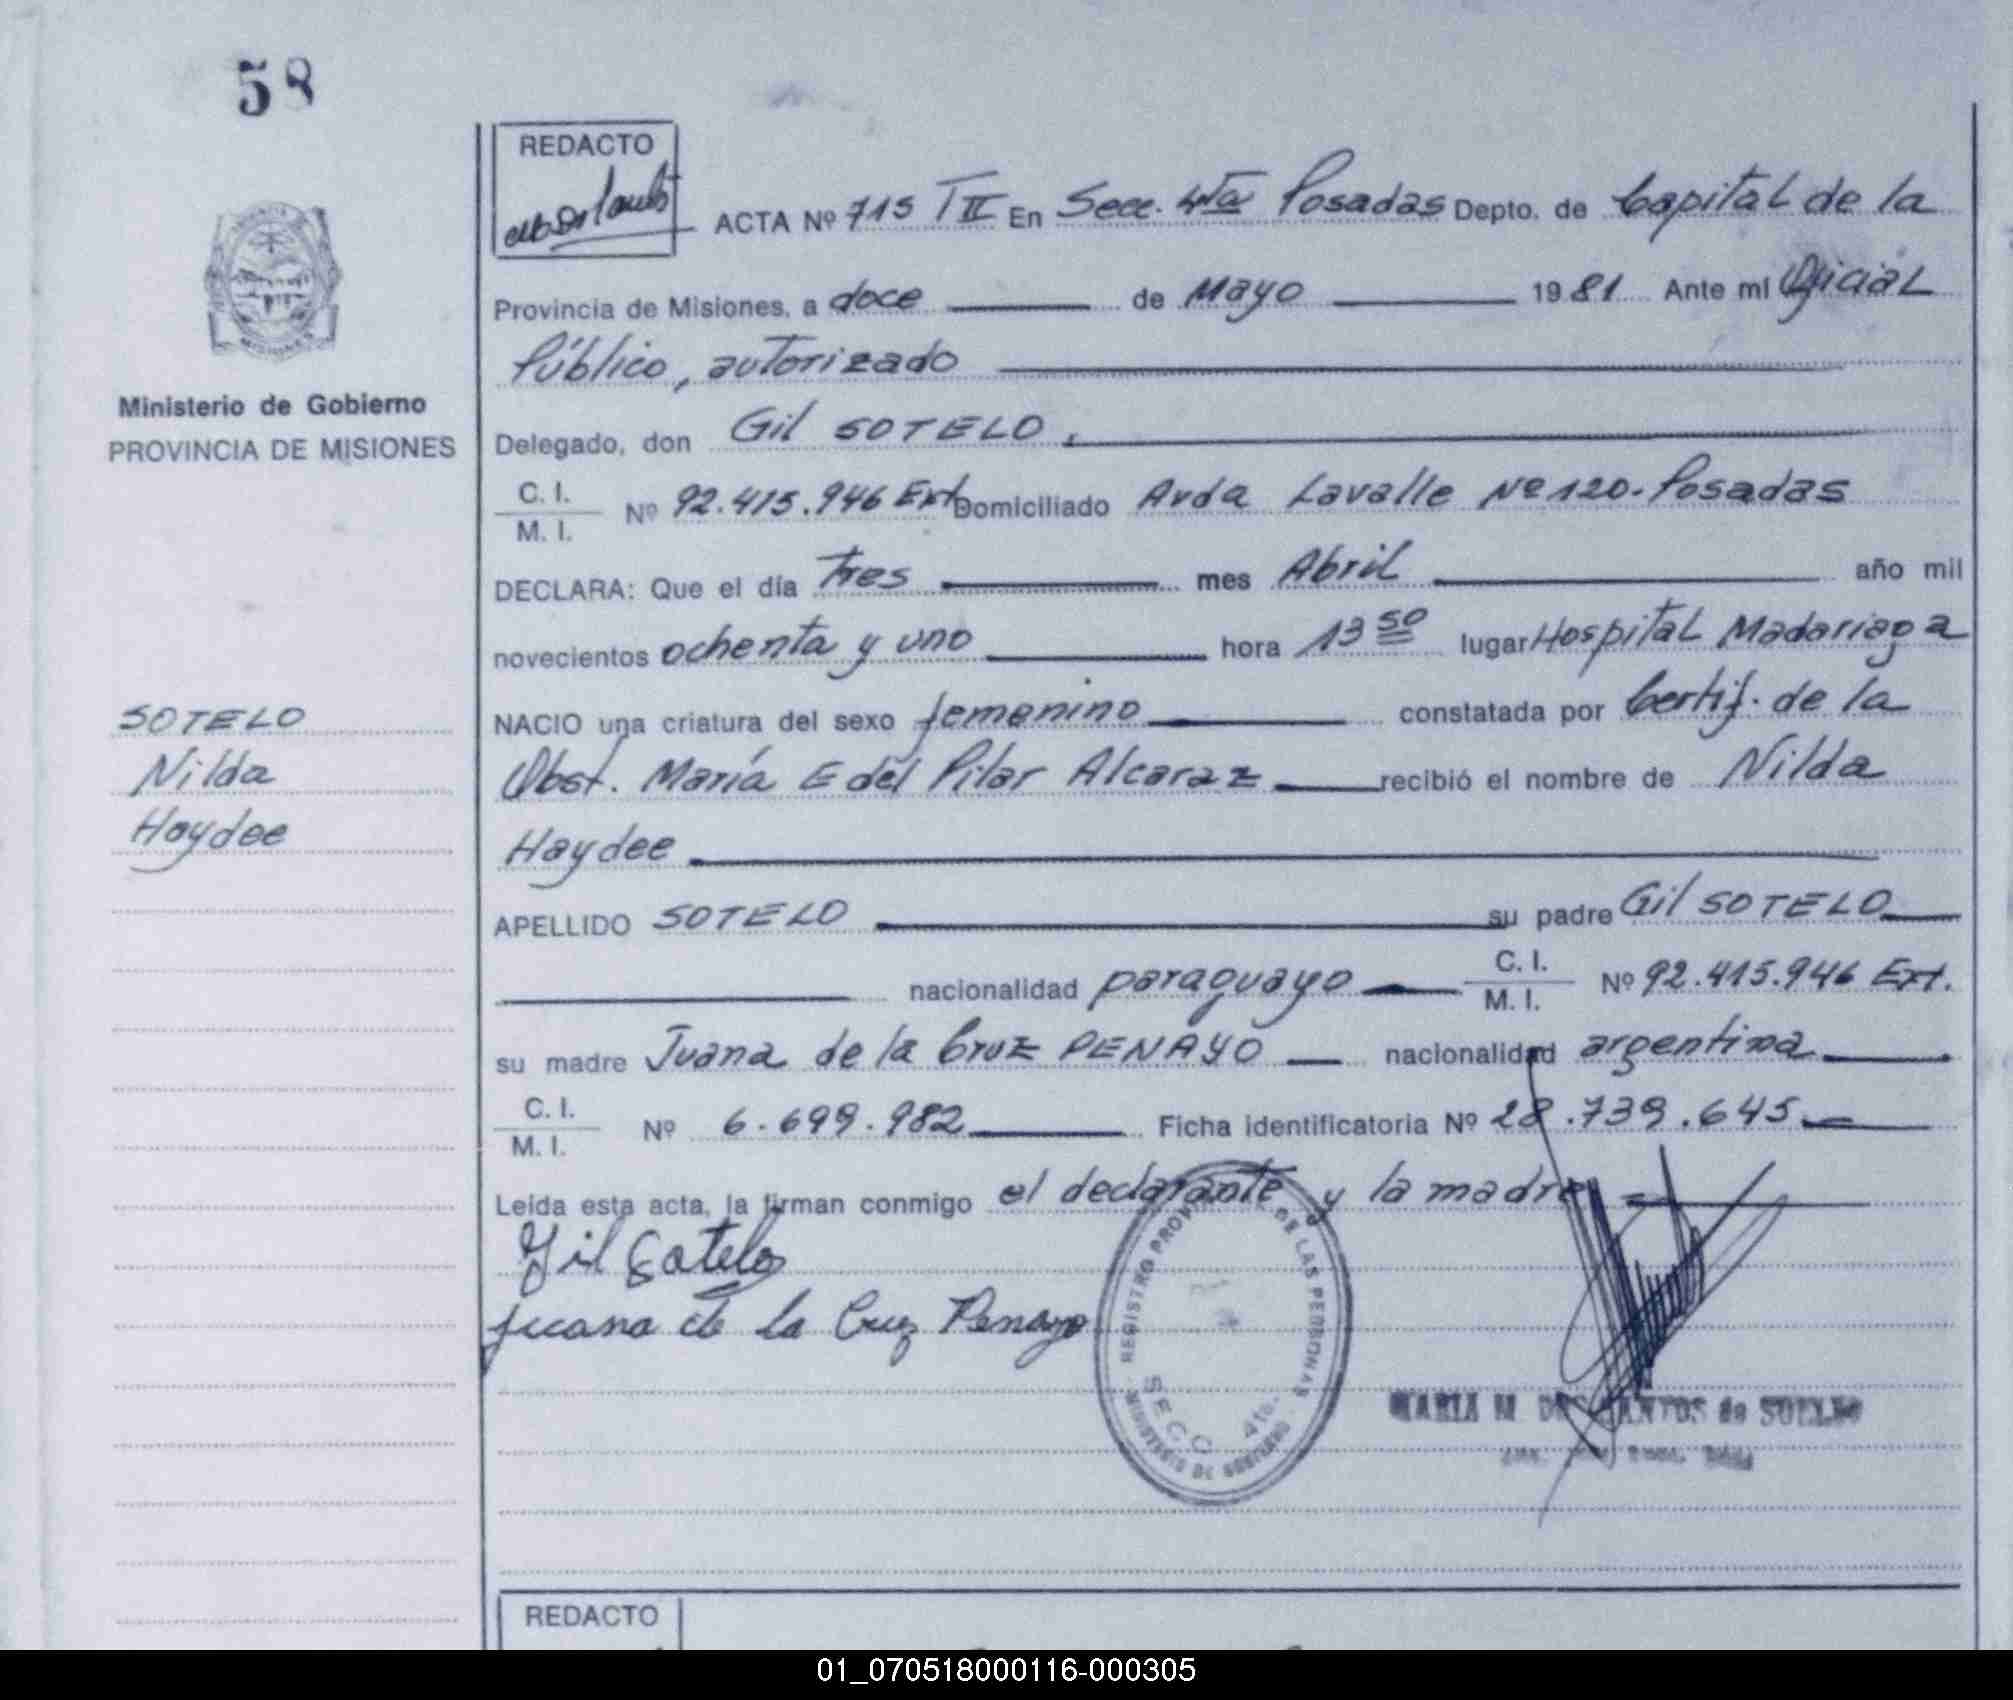 58
REDACTO
ACTA Nº 715 TII En Secc. 4ta Posadas Depto. de Capital de la
Provincia de Misiones, a doce de Mayo 1981 Ante mí Oficial
Público, autorizado
Ministerio de Gobierno
PROVINCIA DE MISIONES
Delegado, don Gil SOTELO.
C. I.
M. I.
Nº 92.415.946 Ext Domiciliado Avda Lavalle Nº 120. Posadas
DECLARA: Que el día Tres mes Abril año mil
novecientos ochenta y uno hora 13 50 lugar Hospital Madariaga
SOTELO
Nilda
Haydee
NACIO una criatura del sexo femenino constatada por Certif. de la
Obst. María E del Pilar Alcaraz recibió el nombre de Nilda
Haydee
APELLIDO SOTELO su padre Gil SOTELO
nacionalidad paraguayo C. I. M. I. Nº 92.415.946 Ext.
su madre Juana de la Cruz PENAYO nacionalidad argentina
C. I.
M. I.
Nº 6.699.982 Ficha identificatoria Nº 28.739.645
Leída esta acta, la firman conmigo el declarante y la madre
Gil Sotelo
Juana de la Cruz Penayo
REGISTRO DE LAS PERSONAS
SECC 4ta.
MINISTERIO DE GOBIERNO
MARIA M DOS SANTOS de
REDACTO
01_070518000116-000305